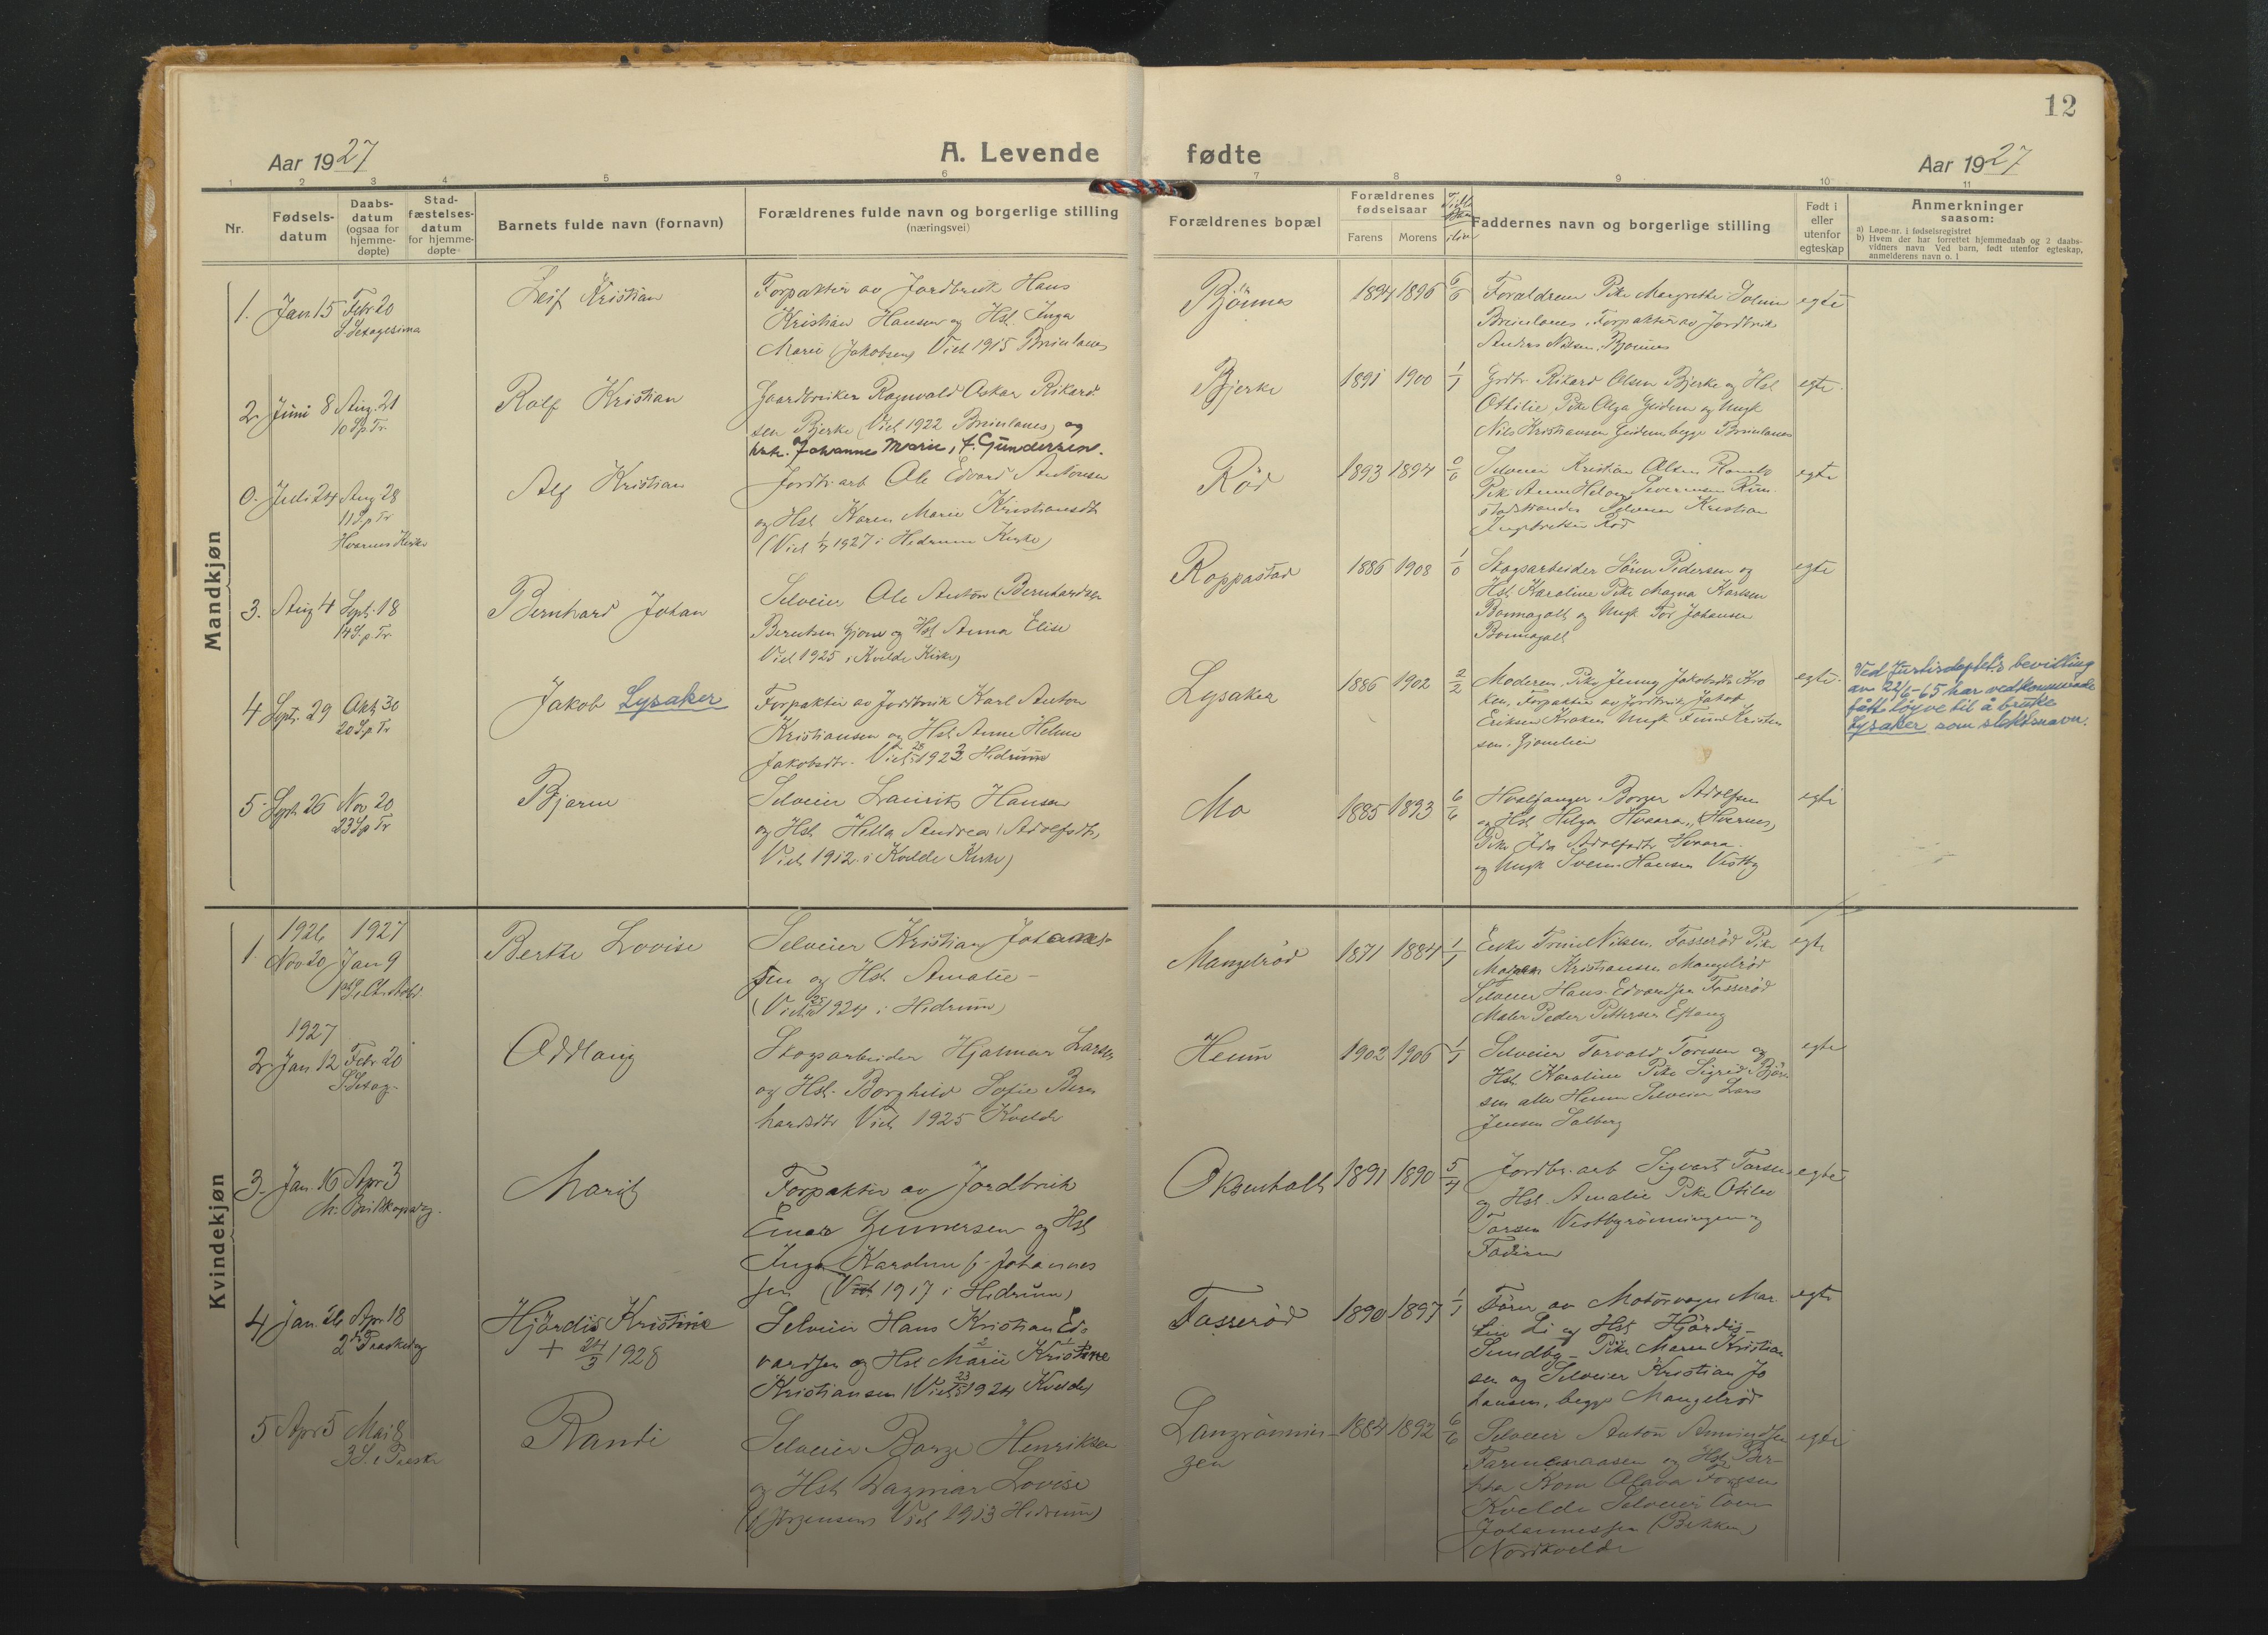 12
Aar 1927
A. Levende fødte
Aar 1927
1 2 3 4 5 6 7 8 9 10 11
Nr.
Fødsels-
datum
Daabs-
datum
(ogsaa for
hjemme-
døpte)
Stad-
fæstelses-
datum
for hjemme-
døpte
Barnets fulde navn (fornavn)
Forældrenes fulde navn og borgerlige stilling
(næringsvei)
Forældrenes bopæl
Forældrenes
fødselsaar
Farens Morens
Faddernes navn og borgerlige stilling
Født i
eller
utenfor
egteskap
Anmerkninger
saasom:
a) Løpe-nr. i fødselsregistret
b) Hvem der har forrettet hjemmedaab og 2 daabs-
vidners navn Ved barn, født utenfor egteskap,
anmelderens navn o. l
Mandkjøn
1. Jan 15 Febr 20
S. Sexagesima
Leif Kristian
Forpakter av Jordbruk Hans
Kristian Hansen og Hst. Inga
Marie (Jakobsen) Viet 1915 Brunlanes
Bjönnes
1894 1896 6/6
Forældrene Pike Margrethe
Brunlanes, Forpakter av Jordbruk
Anders Nilsen, Bjönnes
egte
2. Juni 8 Aug. 21
10 S. p. Tr.
Rolf Kristian
Gaardbruker Ragnvald Oskar Rikard-
sen Bjerke (Viet 1922 Brunlanes) og
hstr. Johanne Marie, f. Gundersen.
Bjerke
1891 1900 1/1
Grdbr. Rikard Olsen Bjerke og Hst
Othilie, Pike Olga og Ungk
Nils Kristiansen begge Brunlanes
egte
0. Juli 24 Aug 28
11 S. p Tr
Hvarnes Kirke
Alf Kristian
Jordbr. arb Ole Edvard Antonsen
og Hst Karen Marie Kristiansdtr
(Viet 1927 i Hedrum Kirke)
Röd
1893 1894 0/0
Selveier Kristian Olsen
Pike Anne Helene Severinsen
Selveier Kristian
Ingebretsen Röd
egte
3. Aug 4 Sept. 18
14 S. p. Tr.
Bernhard Johan
Selveier Ole Anton (Bernhardsen
Berntsen Gjone og Hst Anna Elise
Viet 1925 i Kvelde Kirke)
Roppastad
1886 1908 1/0
Skogsarbeider Sören Pedersen og
Hst Karoline Pike Magna Karlsen
Bommagott og Ungk Tor Johansen
Bommagott
egte
4 Sept. 29 Okt 30
20 S. p Tr
Jakob Lysaker
Forpakter av Jordbruk Karl Anton
Kristiansen og Hst Anne Helene
Jakobsdtr. Viet 1923 Hedrum
Lysaker
1886 1902 2/2
Moderen, Pike Jenny Jakobsdtr Kro
ken, Forpakter av Jordbruk Jakob
Eriksen Kroken Ungk Finn Kristen
sen, Gjonelien
egte.
Ved Justisdeptets bevilling
av 22/6-65 har vedkommende
fått löyve til å bruke
Lysaker som slektsnavn.
5. Sept. 26 Nov 20
23 S p Tr
Bjarne
Selveier Laurits Hansen
og Hst Hella Andrea (Adolfsdtr,
Viet 1912 i Kvelde Kirke)
Mo
1885 1893 6/6
Hvalfanger Borger Adolfsen
og Hst Helga Hvaara, (Hvarnes),
Pike Ida Adolfsdtr Hvaara.
og Ungk Svenn Hansen Vestby
egte
Kvindekjøn
1926 1927
1 Nov 20 Jan 9
Berthe Lovise
Selveier Kristian Johannes-
sen og Hst Amalie –
(Viet 1924 i Hedrum)
Mangelröd
1871 1884 1/1
Enke Trine Nilsen, Fosserød Pike
Maren Kristiansen Mangelröd
Selveier Hans Edvardsen Fosserød
Maler Peder Pettersen
egte
1927
2. Jan 12 Febr 20
S Sexag.
Oddlaug
Skogsarbeider Hjalmar Larsen
og Hst. Borghild Sofie Bern
hardsdtr Viet 1925 Kvelde
Heum
1902 1906 1/1
Selveier Torvald Toresen og
Hst Karoline Pike Sigrid
sen alle Heum Selveier Lars
Jensen Solberg
egte
3. Jan. 16 Apr 3
M. Budskapsdag.
Marit
Forpakter av Jordbruk
Einar Gunnersen og Hst
Inga Karoline f. Johannes
sen (Viet 1917 i Hedrum)
Oksenholt
1891 1890 5/4
Jordbr. arb Sigvart Torsen
og Hst. Amalie Pike Otilie
Torsen Vestbyrönningen og
Faderen
egte
4 Jan. 26 Apr 18
2 Paaskedag
Hjördis Kristine
+ 24/3 1928
Selveier Hans Kristian Ed-
vardsen og Hst Marie Kristine
Kristiansen (Viet 1924 Kvelde)
Fosserød
1890 1897 1/1
Förer av Motorvogn Mar-
tin Li og Hst Hjördis
Sundby – Pike Maren Kristian
sen og Selveier Kristian Jo
hansen, begge Mangelröd
egte
5 Apr 5 Mai 8
3 S. e Paaske
Randi
Selveier Borge Henriksen
og Hst Dagmar Lovise
(f Jörgensen) Viet 1913 Hedrum)
Langrönnin-
gen
1884 1892 6/6
Selveier Anton Amundsen
og Hst Ber-
tha Kom Olava Torgesen
Kvelde Selveier Even
Johannessen (Bekken)
Nordkvelde
egte